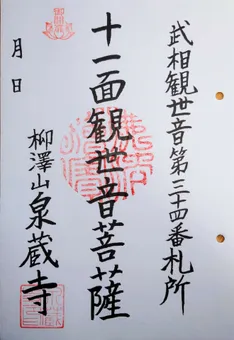 武相観世音第三十四番札所
十一面観世音菩薩
柳澤山泉蔵寺
月日